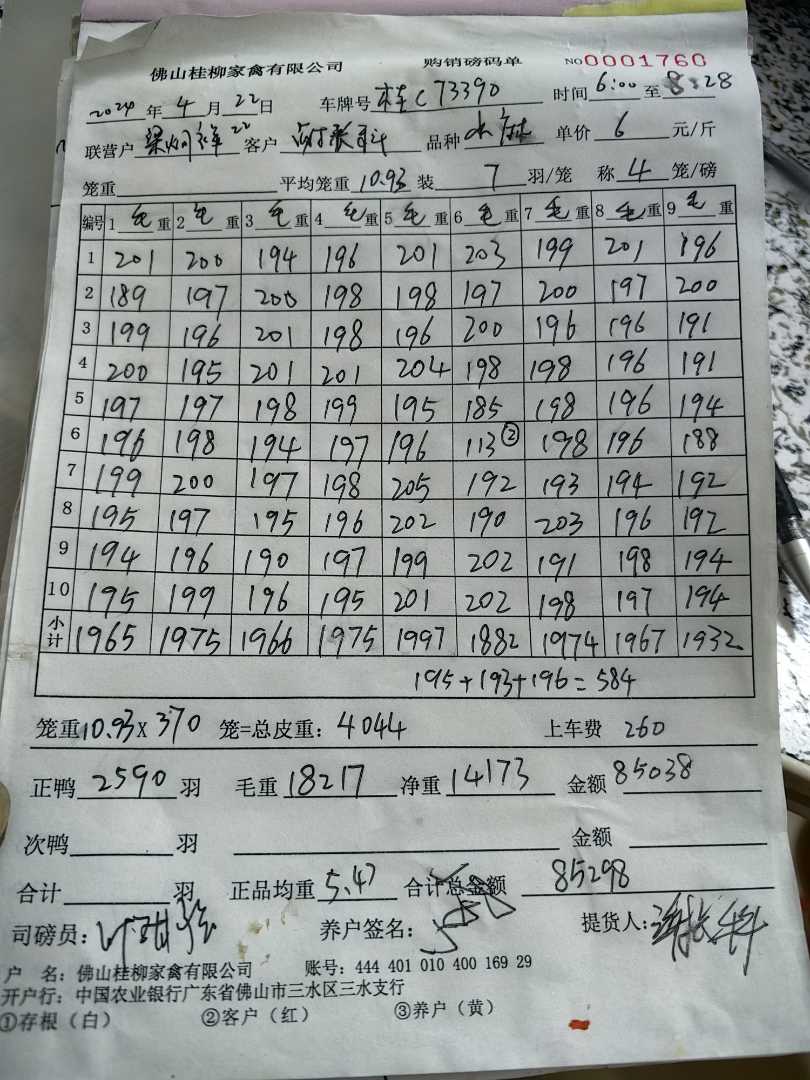 佛山桂柳家禽有限公司 购销磅码单 NO0001760
2024年4月22日 车牌号 C73390 时间6:00至8:28
联营户 22 客户 品种 单价 6 元/斤
笼重 平均笼重 10.93 装 7 羽/笼 称 4 笼/磅
编号 1毛重 2毛重 3毛重 4毛重 5毛重 6毛重 7毛重 8毛重 9毛重
1 201 200 194 196 201 203 199 201 196
2 189 197 200 198 198 197 200 197 200
3 199 196 201 198 196 200 196 196 191
4 200 195 201 201 204 198 198 196 191
5 197 197 198 199 195 185 198 196 194
6 196 198 194 197 196 113② 198 196 188
7 199 200 197 198 205 192 193 194 192
8 195 197 195 196 202 190 203 196 192
9 194 196 190 197 199 202 191 198 194
10 195 199 196 195 201 202 198 197 194
小计 1965 1975 1966 1975 1997 1882 1974 1967 1932
195+193+196=584
笼重10.93X370 笼=总皮重：4044 上车费 260
正鸭 2590 羽 毛重 18217 净重 14173 金额 85038
次鸭 羽 金额
合计 羽 正品均重 5.47 合计总金额 85298
司磅员： 养户签名： 提货人：
户 名：佛山桂柳家禽有限公司 账号：444 401 010 400 169 29
开户行：中国农业银行广东省佛山市三水区三水支行
①存根（白） ②客户（红） ③养户（黄）